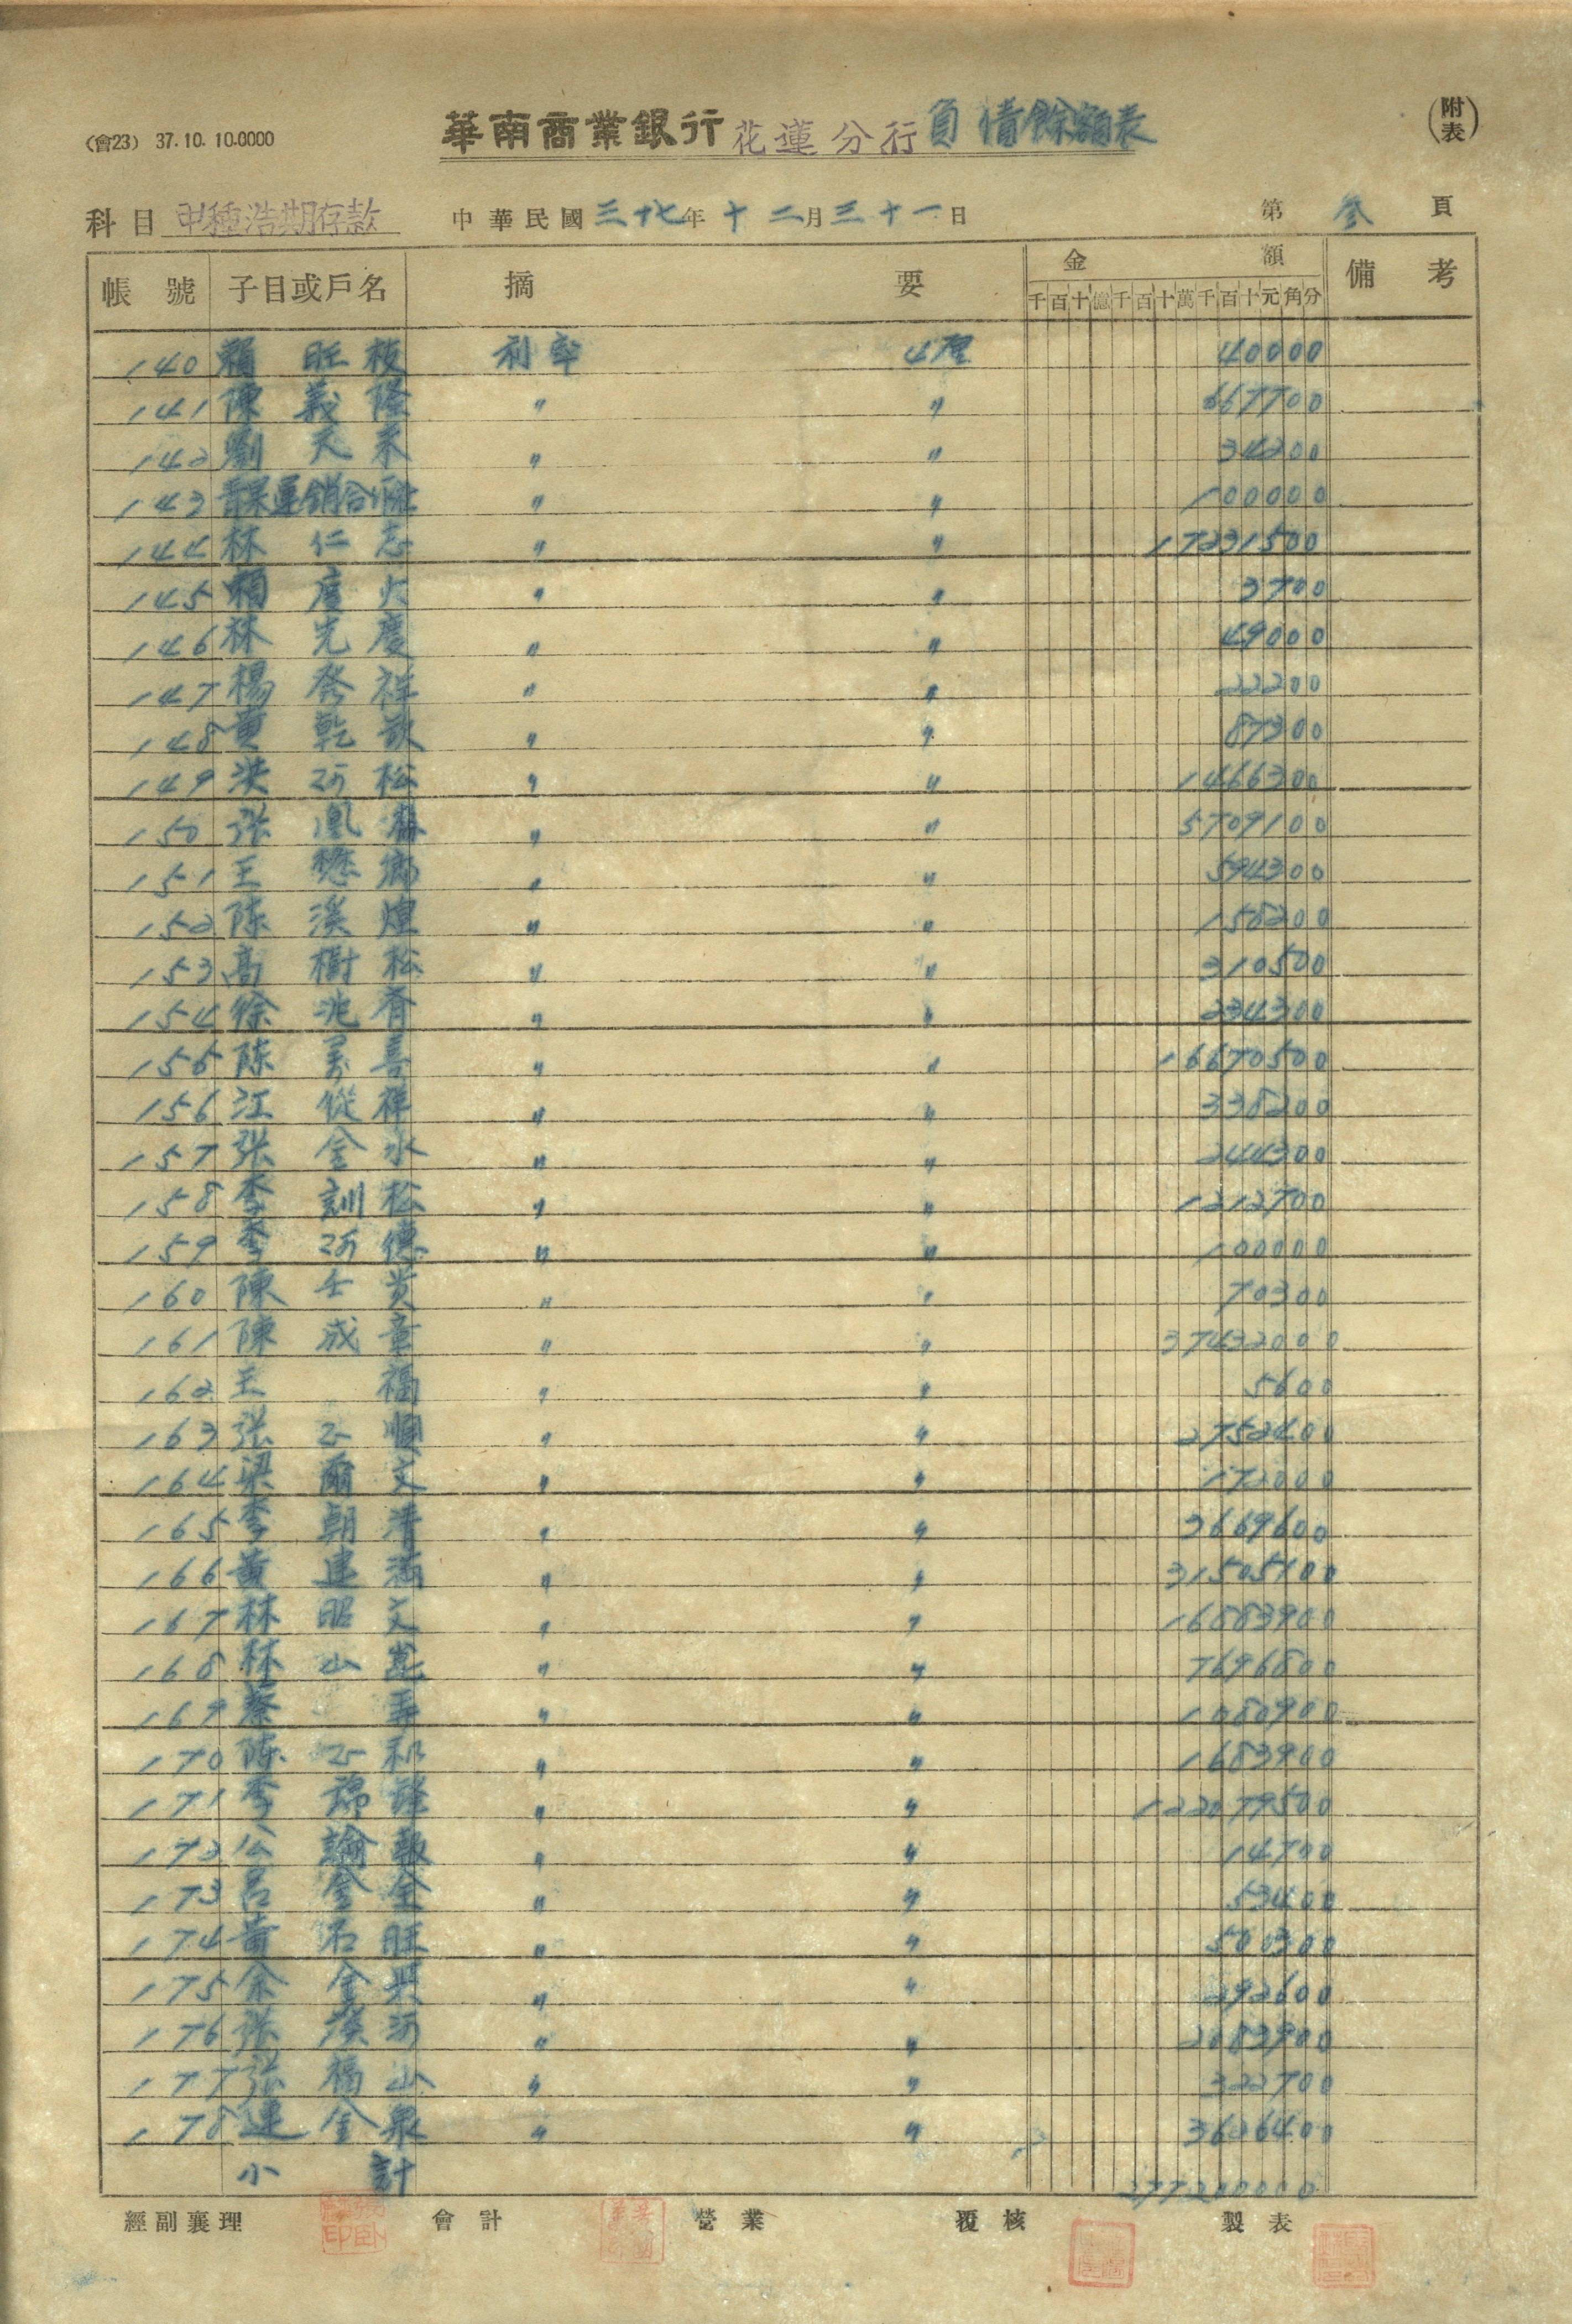 (會23) 37.10.10.0000
華南商業銀行花蓮分行負債餘額表
(附表)
科目 甲種活期存款 中華民國三十七年十二月三十一日 第 参 頁
帳號 子目或戶名 摘要 金額 備考
千百十億千百十萬千百十元角分
140 賴旺枝 利率 4厘 40000
141 陳義隆 〃 〃 667700
142 劉天禾 〃 〃 34200
143 青果運銷合作社 〃 〃 100000
144 林仁志 〃 〃 17231500
145 賴慶火 〃 〃 3700
146 林光慶 〃 〃 49000
147 楊發祥 〃 〃 22200
148 黃乾 〃 〃 87300
149 洪阿松 〃 〃 1466300
150 張凰 〃 〃 5709100
151 王懋鄉 〃 〃 594300
152 陈溪煌 〃 〃 158200
153 高樹松 〃 〃 310500
154 徐兆齊 〃 〃 234300
155 陈萬喜 〃 〃 16670500
156 江從祥 〃 〃 338200
157 张金水 〃 〃 244300
158 李訓松 〃 〃 1212700
159 李阿德 〃 〃 100000
160 陳壬貴 〃 〃 70300
161 陳成章 〃 〃 37432000
162 王福 〃 〃 5600
163 张正順 〃 〃 2752400
164 梁爾文 〃 〃 172000
165 李朝清 〃 〃 3669600
166 黃建滿 〃 〃 31505100
167 林昭文 〃 〃 16883900
168 林山崑 〃 〃 7696800
169 蔡 〃 〃 1080900
170 陈正和 〃 〃 1683900
171 李錦 〃 〃 122079500
172 公論報 〃 〃 14700
173 呂金全 〃 〃 53400
174 黃石旺 〃 〃 500300
175 余金興 〃 〃 292600
176 张漢河 〃 〃 2083900
177 张福山 〃 〃 322700
178 連金泉 〃 〃 3606400
小計 277200000
經副襄理 會計 營業 覆核 製表